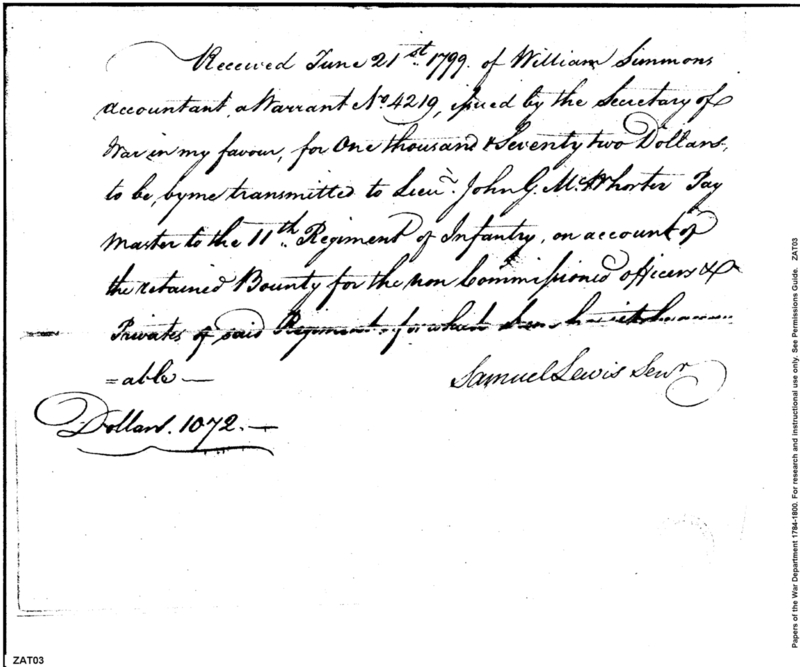 Received June 21st. 1799. of William Simmons
accountant, a Warrant No. 4219, issued by the Secretary of
War in my favour, for One thousand & Seventy two Dollars,
to be, by me transmitted to Lieut. John G. McWhorter Pay
Master to the 11th. Regiment of Infantry, on account of
the retained Bounty for the non Commissioned officers &
Privates of said Regiment, for which
=able—
Samuel Lewis Senr
Dollars. 1072.—
ZAT03
Papers of the War Department 1784-1800. For research and instructional use only. See Permissions Guide. ZAT03